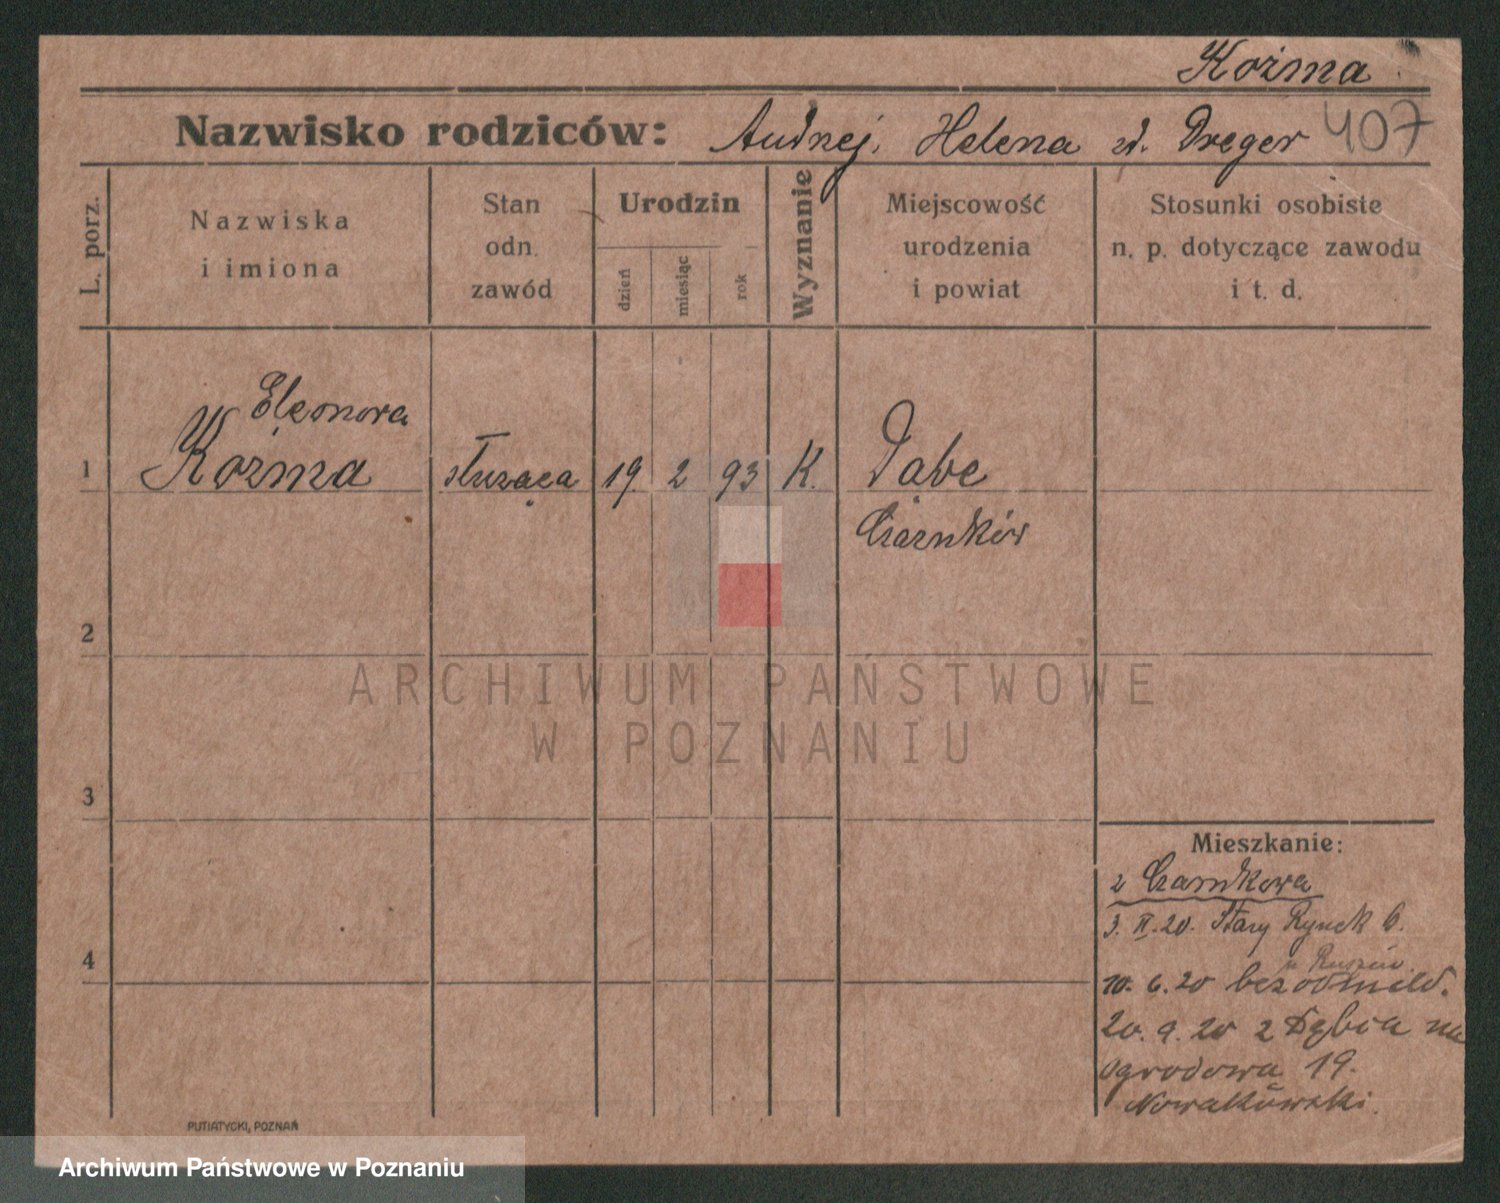 Kozma
Nazwisko rodziców: Andrzej, Helena zd. Dreger 407
L. porz.
Nazwiska
i imiona
Stan
odn.
zawód
Urodzin
dzień
miesiąc
rok
Wyznanie
Miejscowość
urodzenia
i powiat
Stosunki osobiste
n. p. dotyczące zawodu
i t. d.
Eleonora
1 Kozma służąca 19. 2 93 K. Dąbe
Czarnków
2
ARCHIWUM PAŃSTWOWE
W POZNANIU
3
Mieszkanie:
z Czarnkowa
3. II. 20. Stary Rynek 6.
10. 6. 20 bez odmeld.
4
20. 9. 20 z Dębia na
ogrodowa 19.
Nowakowski.
PUTIATYCKI, POZNAŃ
Archiwum Państwowe w Poznaniu